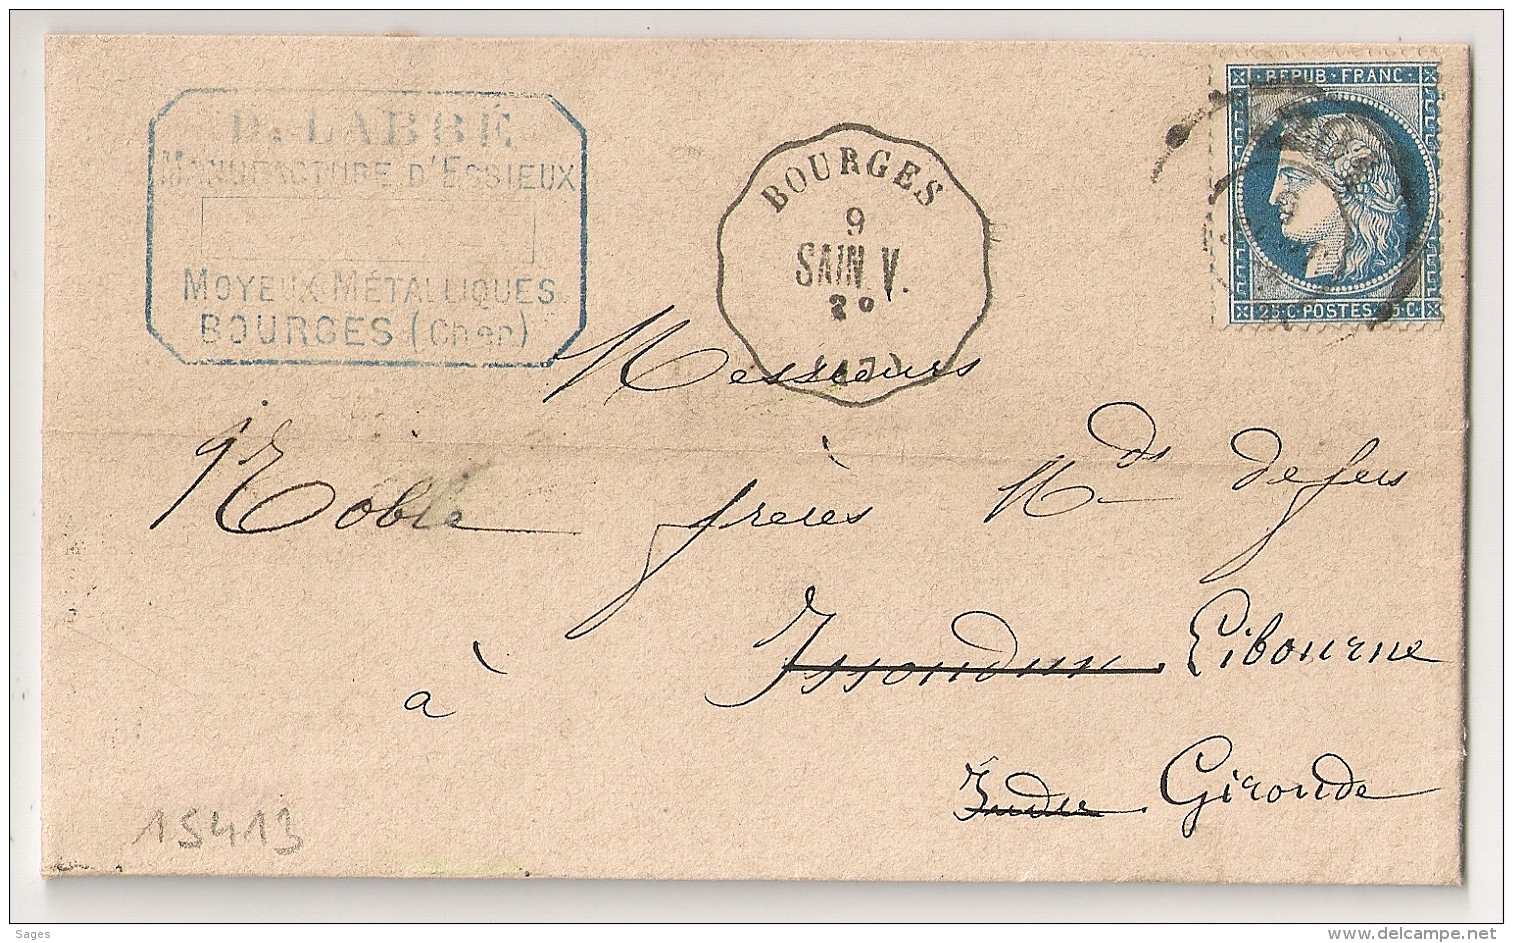 D. LABBÉ
MANUFACTURE D'ESSIEUX
MOYEUX MÉTALLIQUES
BOURGES (Cher)
BOURGES
9
SAIN. V.
REPUB·FRANC·
25·C·POSTES·25·C·
Messieurs
Noble frères Mds de fers
à Issoudun Libourne
Indre Gironde
15413
Sages
www.delcampe.net